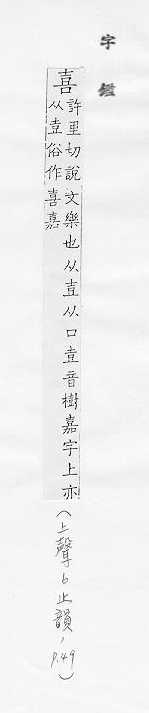 字鑑
喜
許里切說文樂也从壴从口壴音樹嘉字上亦
从壴俗作喜嘉
(上聲6止韻, p.49)